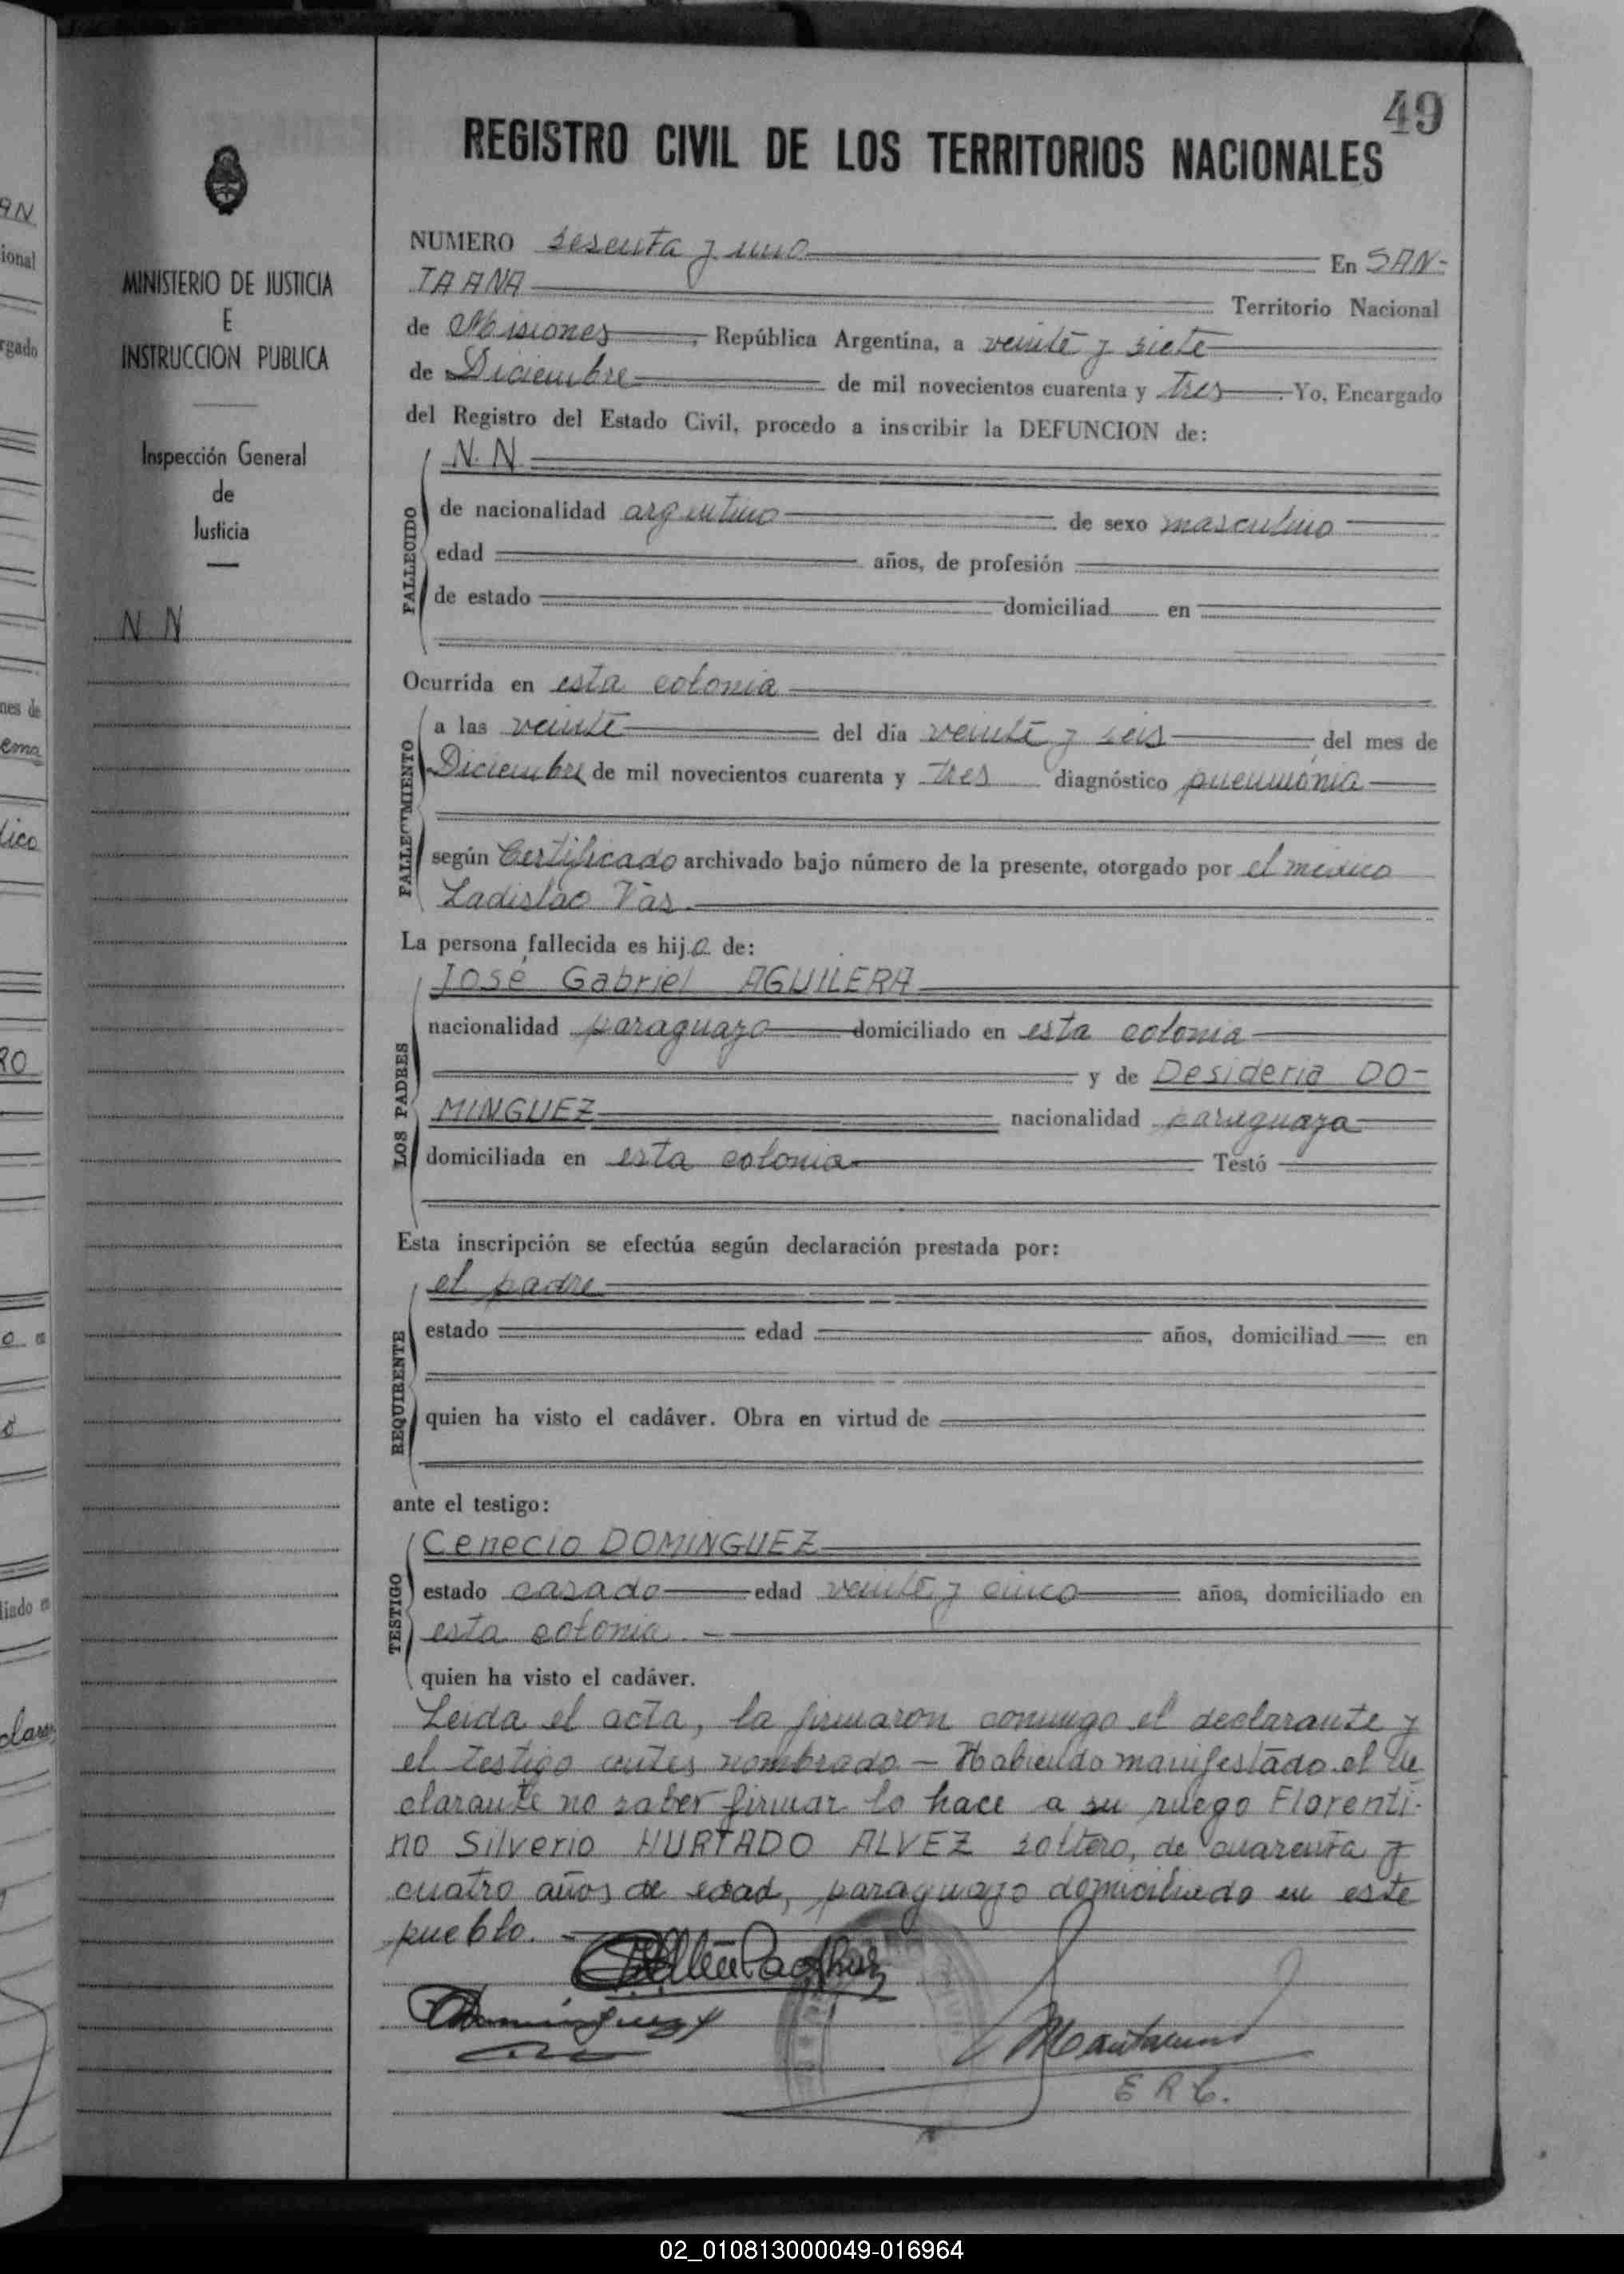 49
REGISTRO CIVIL DE LOS TERRITORIOS NACIONALES
MINISTERIO DE JUSTICIA
E
INSTRUCCION PUBLICA
Inspección General
de
Justicia
N N
NUMERO sesenta y uno En SAN-
TA ANA Territorio Nacional
de Misiones, República Argentina, a veinte y siete
de Diciembre de mil novecientos cuarenta y tres. Yo, Encargado
del Registro del Estado Civil, procedo a inscribir la DEFUNCION de:
FALLECIDO
N. N.
de nacionalidad argentino de sexo masculino
edad años, de profesión
de estado domiciliad en
Ocurrida en esta colonia
FALLECIMIENTO
a las veinte del día veinte y seis del mes de
Diciembre de mil novecientos cuarenta y tres diagnóstico pneumónia
según Certificado archivado bajo número de la presente, otorgado por el médico
Ladislao Vás.
La persona fallecida es hijo de:
LOS PADRES
José Gabriel AGUILERA
nacionalidad paraguayo domiciliado en esta colonia
y de Desideria DO-
MINGUEZ nacionalidad paraguaya
domiciliada en esta colonia Testó
Esta inscripción se efectúa según declaración prestada por:
REQUIRENTE
el padre
estado edad años, domiciliad en
quien ha visto el cadáver. Obra en virtud de
ante el testigo:
TESTIGO
Cenecio DOMINGUEZ
estado casado edad veinte y cinco años, domiciliado en
esta colonia. -
quien ha visto el cadáver.
Leída el acta, la firmaron conmigo el declarante y
el testigo antes nombrado - Habiendo manifestado el de
clarante no saber firmar lo hace a su ruego Florenti-
no Silverio HURTADO ALVEZ soltero, de cuarenta y
cuatro años de edad, paraguayo domiciliado en este
pueblo. -
Dominguez
E R C.
02_010813000049-016964